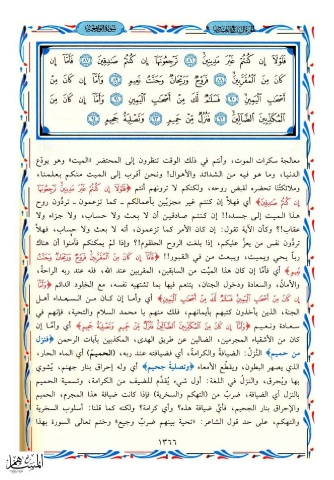 فَلَوْلَا إِن كُنتُمْ غَيْرَ مَدِينِينَ ﴿٨٦﴾ تَرْجِعُونَهَا إِن كُنتُمْ صَادِقِينَ ﴿٨٧﴾ فَأَمَّا إِن
كَانَ مِنَ الْمُقَرَّبِينَ ﴿٨٨﴾ فَرَوْحٌ وَرَيْحَانٌ وَجَنَّتُ نَعِيمٍ ﴿٨٩﴾ وَأَمَّا إِن كَانَ مِنْ
أَصْحَابِ الْيَمِينِ ﴿٩٠﴾ فَسَلَامٌ لَّكَ مِنْ أَصْحَابِ الْيَمِينِ ﴿٩١﴾ وَأَمَّا إِن كَانَ مِنَ
الْمُكَذِّبِينَ الضَّالِّينَ ﴿٩٢﴾ فَنُزُلٌ مِّنْ حَمِيمٍ ﴿٩٣﴾ وَتَصْلِيَةُ جَحِيمٍ ﴿٩٤﴾
معالجة سكرات الموت، وأنتم في ذلك الوقت تنظرون إلى المحتضر «الميت» وهو يودّع
الدنيا، وما هو فيه من الشدائد والأهوال! ونحن أقرب إلى الميت منكم بعلمنا،
وملائكتُنا تحضره لقبض روحه، ولكنكم لا ترونهم أنتم ﴿فَلَوْلَا إِن كُنتُمْ غَيْرَ مَدِينِينَ تَرْجِعُونَهَا
إِن كُنتُمْ صَادِقِينَ﴾ أي فهلاّ إن كنتم غير مجزيّين بأعمالكم ـ كما تزعمون ـ تردّون روح
هذا الميت إلى جسده!! إن كنتم صادقين أن لا بعث ولا حساب، ولا جزاء ولا
عقاب!؟ وكأن الآية تقول: إن كان الأمر كما تزعمون، أنه لا بعث ولا حساب، فهلاّ
تردّون نفس من يعزّ عليكم، إذا بلغت الروح الحلقوم!؟ وإذا لم يمكنكم فآمنوا أن هناك
رباً يحيي ويميت، ويبعث من في القبور!! ﴿فَأَمَّا إِن كَانَ مِنَ الْمُقَرَّبِينَ فَرَوْحٌ وَرَيْحَانٌ وَجَنَّتُ
نَعِيمٍ﴾ أي فأمّا إن كان هذا الميّت من السابقين، المقربين عند الله، فله عند ربه الراحةُ،
والأمانُ، والسعادة ودخول الجنان، يتنعم فيها بما تشتهيه نفسه، مع الخلود الدائم ﴿وَأَمَّا
إِن كَانَ مِنْ أَصْحَابِ الْيَمِينِ فَسَلَامٌ لَّكَ مِنْ أَصْحَابِ الْيَمِينِ﴾ أي وأمـا إن كـان مـن السـعـداء أهـل
الجنة، الذين يأخذون كتبهم بأيمانهم، فلك منهم يا محمد السلام والتحية، فإنهم في
سـعـادة ونـعـيـم ﴿وَأَمَّا إِن كَانَ مِنَ الْمُكَذِّبِينَ الضَّالِّينَ فَنُزُلٌ مِّنْ حَمِيمٍ وَتَصْلِيَةُ جَحِيمٍ﴾ أي وأمّـا إن
كان من الأشقياء المجرمين، الضالين عن طريق الهدى، المكذبين بآيات الرحمن ﴿فنزل
من حميم﴾ النُزُلُ: الضيافةُ والكرامةُ، أي فضيافته عند ربه، ﴿الحميمُ﴾ أي الماء الحار،
الذي يصهر البطون، ويقطّع الأمعاء ﴿وتصلية جحيم﴾ أي وله إحراق بنار جهنم، يُشوى
بها ويُحرق، والنزل في اللغة: أول شيء يُقدَّم للضيف من الكرامة، وتسمية الحميم
بالنزل أي الضيافة، ضربٌ من (التهكم والسخرية) فإذا كانت ضيافة هذا المجرم، الحميم
والإحراق بنار الجحيم، فأيُّ ضيافة هذه؟ وأي كرامة؟ ولكنه كما قلنا: أسلوب السخرية
والتهكم، على حد قول الشاعر: «تحية بينهم ضربٌ وجيع» وختم تعالى السورة بهذا
١٣٦٦